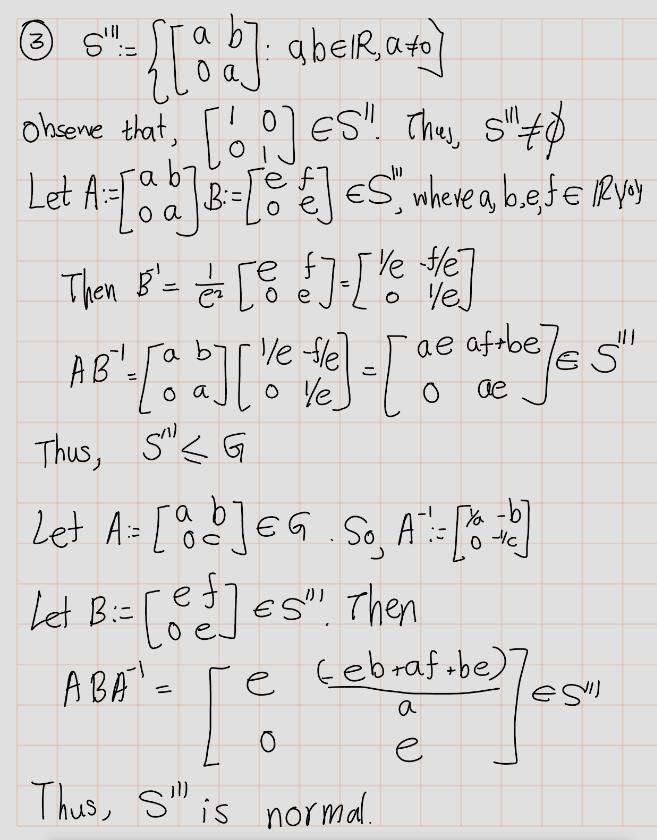 ③ S''' := {[a b; 0 a] : a b ∈ ℝ, a ≠ 0}
Observe that, [1 0; 0 1] ∈ S'''. Thus, S''' ≠ ∅
Let A := [a b; 0 a] B := [e f; 0 e] ∈ S''', where a, b, e, f ∈ ℝ\{0}
Then B⁻¹ = 1/e² [e f; 0 e] = [1/e -f/e; 0 1/e]
AB⁻¹ = [a b; 0 a] [1/e -f/e; 0 1/e] = [ae af+be; 0 ae] ∈ S'''
Thus, S''' ≤ G
Let A := [a b; 0 c] ∈ G. So, A⁻¹ := [1/a -b; 0 -1/c]
Let B := [e f; 0 e] ∈ S'''. Then
ABA⁻¹ = [e (-eb+af+be)/a; 0 e] ∈ S'''
Thus, S''' is normal.